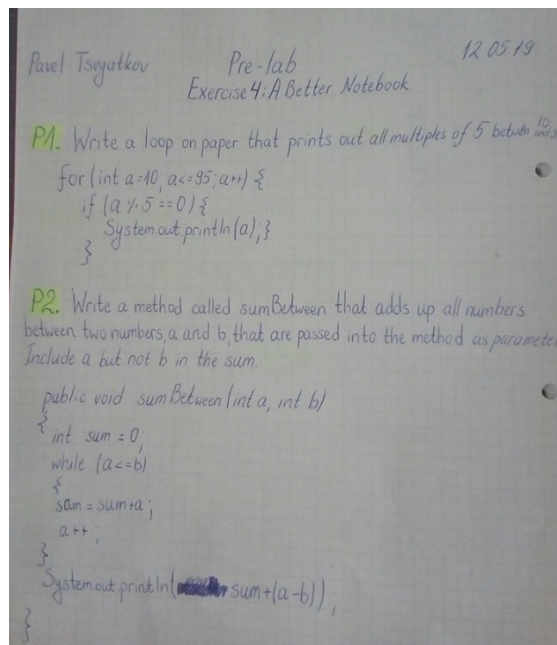 12.05.19
Pavel Tsvyatkov
Pre-lab
Exercise 4: A Better Notebook
P1. Write a loop on paper that prints out all multiples of 5 between 10
for (int a=10; a<=95; a++) {
if (a % 5 == 0) {
System.out.println(a); }
}
P2. Write a method called sumBetween that adds up all numbers
between two numbers, a and b, that are passed into the method as parameter
Include a but not b in the sum.
public void sumBetween (int a, int b)
{
int sum = 0;
while (a<=b)
{
sum = sum+a;
a++;
}
System.out.println( sum+(a-b));
}